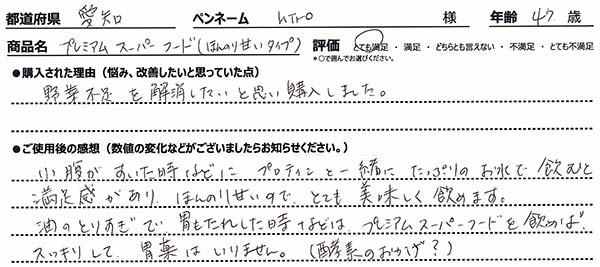 都道府県 愛知 ペンネーム 様 年齢 47 歳
商品名 プレミアムスーパーフード(ほんのり甘いタイプ) 評価 とても満足 ・ 満足 ・ どちらとも言えない ・ 不満足 ・ とても不満足
*○で囲んでお選びください。
●購入された理由（悩み、改善したいと思っていた点）
野菜不足を解消したいと思い購入しました。
●ご使用後の感想（数値の変化などがございましたらお知らせください。）
小腹がすいた時などに プロテインと一緒に たっぷりのお水で飲むと
満足感があり、ほんのり甘いので、とても美味しく飲めます。
油のとりすぎで、胃もたれした時などは、プレミアムスーパーフードを飲めば、
スッキリして、胃薬はいりません。(酵素のおかげ？)